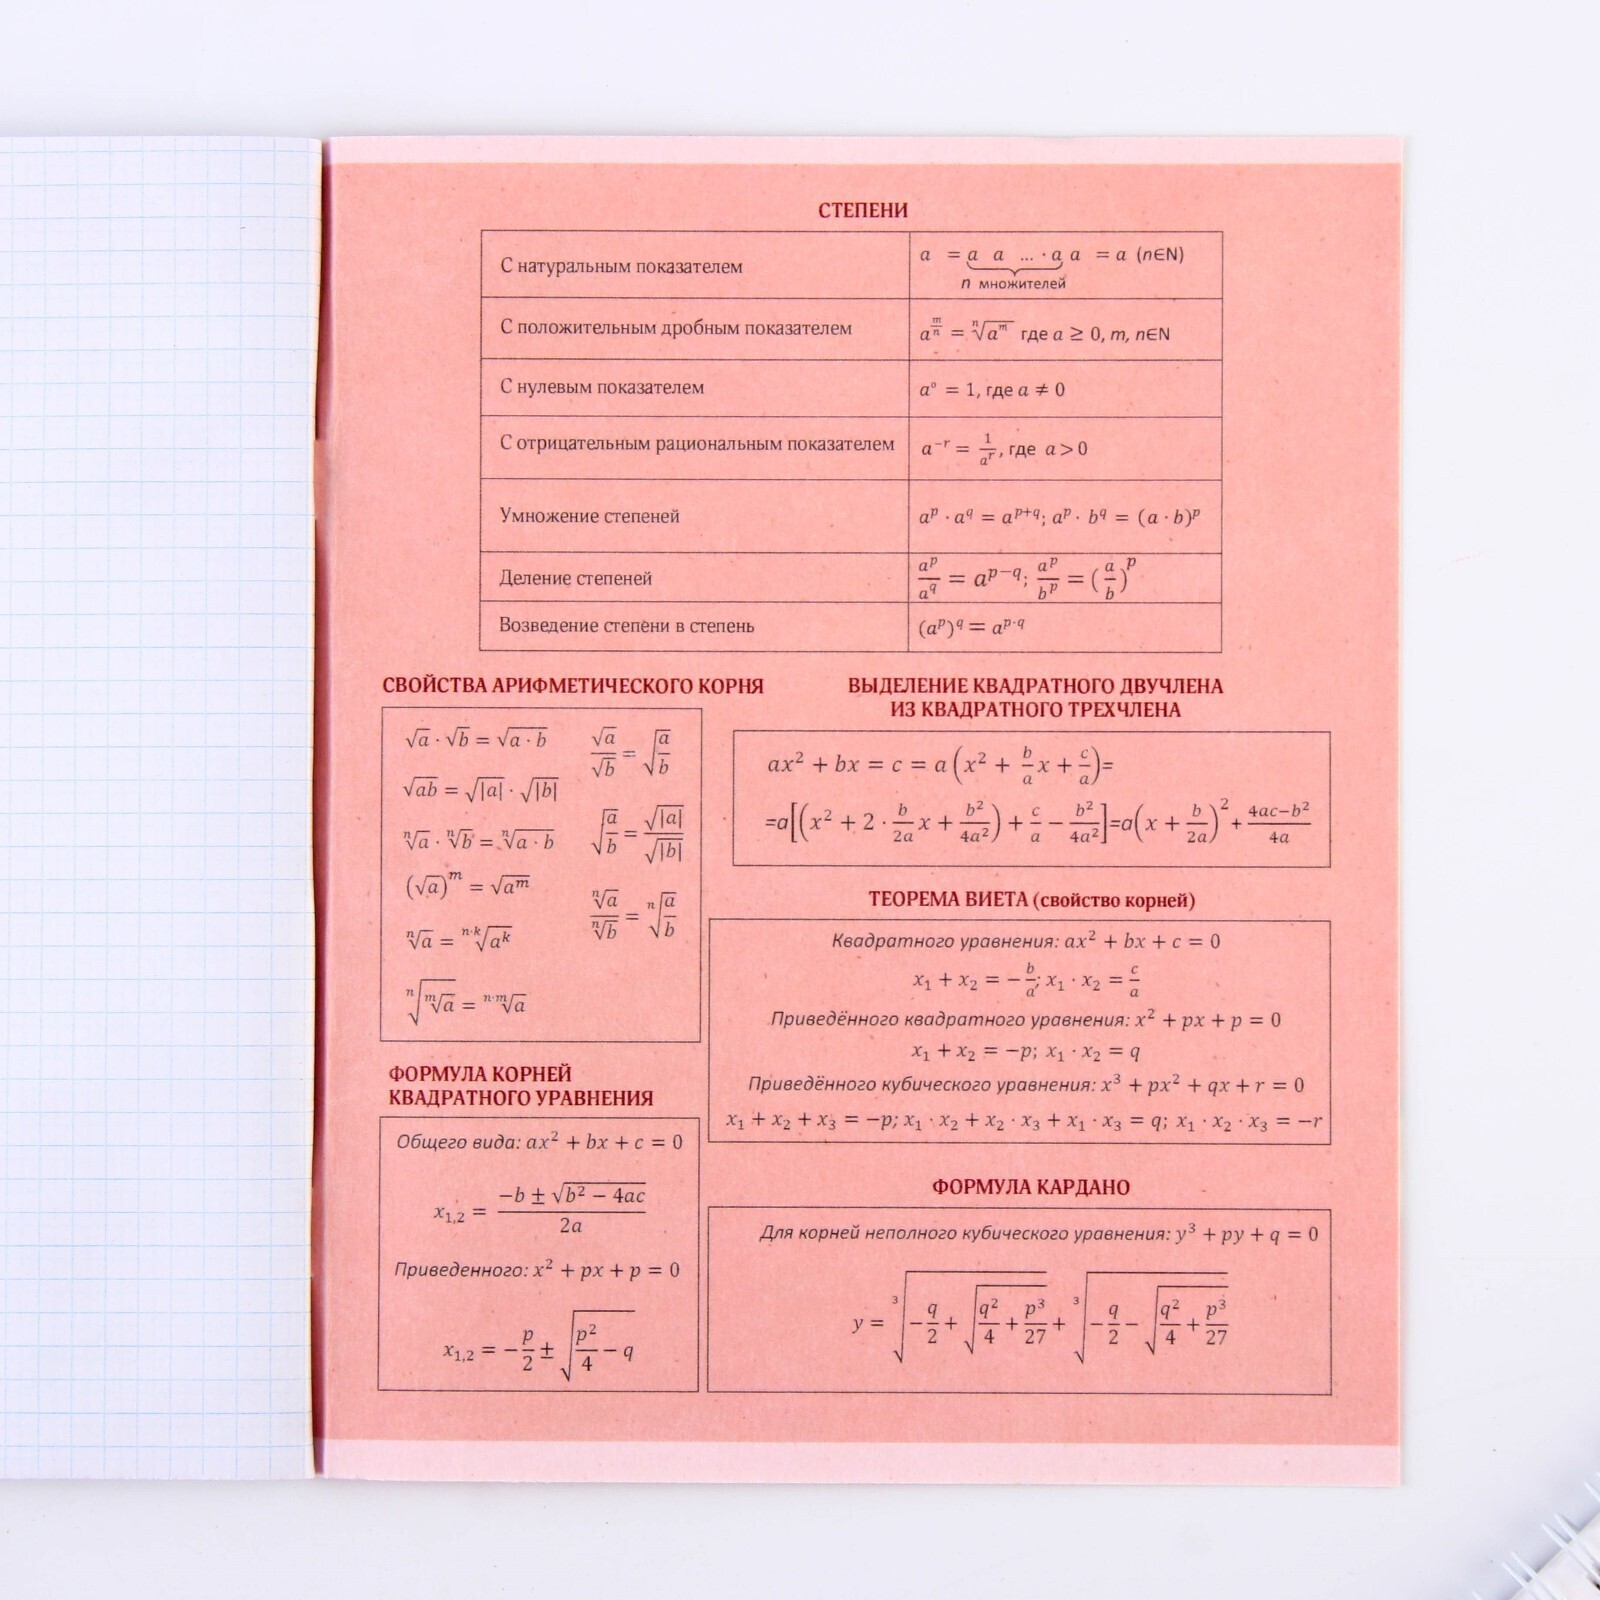 СТЕПЕНИ
С натуральным показателем
a = a a ... · a a = a (n∈N)
n множителей
С положительным дробным показателем
a^(m/n) = ⁿ√(a^m) где a ≥ 0, m, n∈N
С нулевым показателем
a⁰ = 1, где a ≠ 0
С отрицательным рациональным показателем
a^(−r) = 1/a^r, где a > 0
Умножение степеней
a^p · a^q = a^(p+q); a^p · b^q = (a · b)^p
Деление степеней
a^p/a^q = a^(p−q); a^p/b^p = (a/b)^p
Возведение степени в степень
(a^p)^q = a^(p·q)
СВОЙСТВА АРИФМЕТИЧЕСКОГО КОРНЯ
√a · √b = √(a · b)
√a/√b = √(a/b)
√(ab) = √|a| · √|b|
√(a/b) = √|a|/√|b|
ⁿ√a · ⁿ√b = ⁿ√(a · b)
(√a)^m = √(a^m)
ⁿ√a/ⁿ√b = ⁿ√(a/b)
ⁿ√a = ⁿ·ᵏ√(a^k)
ⁿ√(ᵐ√a) = ⁿ·ᵐ√a
ВЫДЕЛЕНИЕ КВАДРАТНОГО ДВУЧЛЕНА
ИЗ КВАДРАТНОГО ТРЕХЧЛЕНА
ax² + bx = c = a(x² + b/a x + c/a)=
=a[(x² + 2 · b/2a x + b²/4a²) + c/a − b²/4a²]=a(x + b/2a)² + (4ac−b²)/4a
ТЕОРЕМА ВИЕТА (свойство корней)
Квадратного уравнения: ax² + bx + c = 0
x₁ + x₂ = −b/a; x₁ · x₂ = c/a
Приведённого квадратного уравнения: x² + px + p = 0
x₁ + x₂ = −p; x₁ · x₂ = q
Приведённого кубического уравнения: x³ + px² + qx + r = 0
x₁ + x₂ + x₃ = −p; x₁ · x₂ + x₂ · x₃ + x₁ · x₃ = q; x₁ · x₂ · x₃ = −r
ФОРМУЛА КОРНЕЙ
КВАДРАТНОГО УРАВНЕНИЯ
Общего вида: ax² + bx + c = 0
x₁,₂ = (−b ± √(b² − 4ac))/2a
Приведенного: x² + px + p = 0
x₁,₂ = −p/2 ± √(p²/4 − q)
ФОРМУЛА КАРДАНО
Для корней неполного кубического уравнения: y³ + py + q = 0
y = ³√(−q/2 + √(q²/4 + p³/27)) + ³√(−q/2 − √(q²/4 + p³/27))